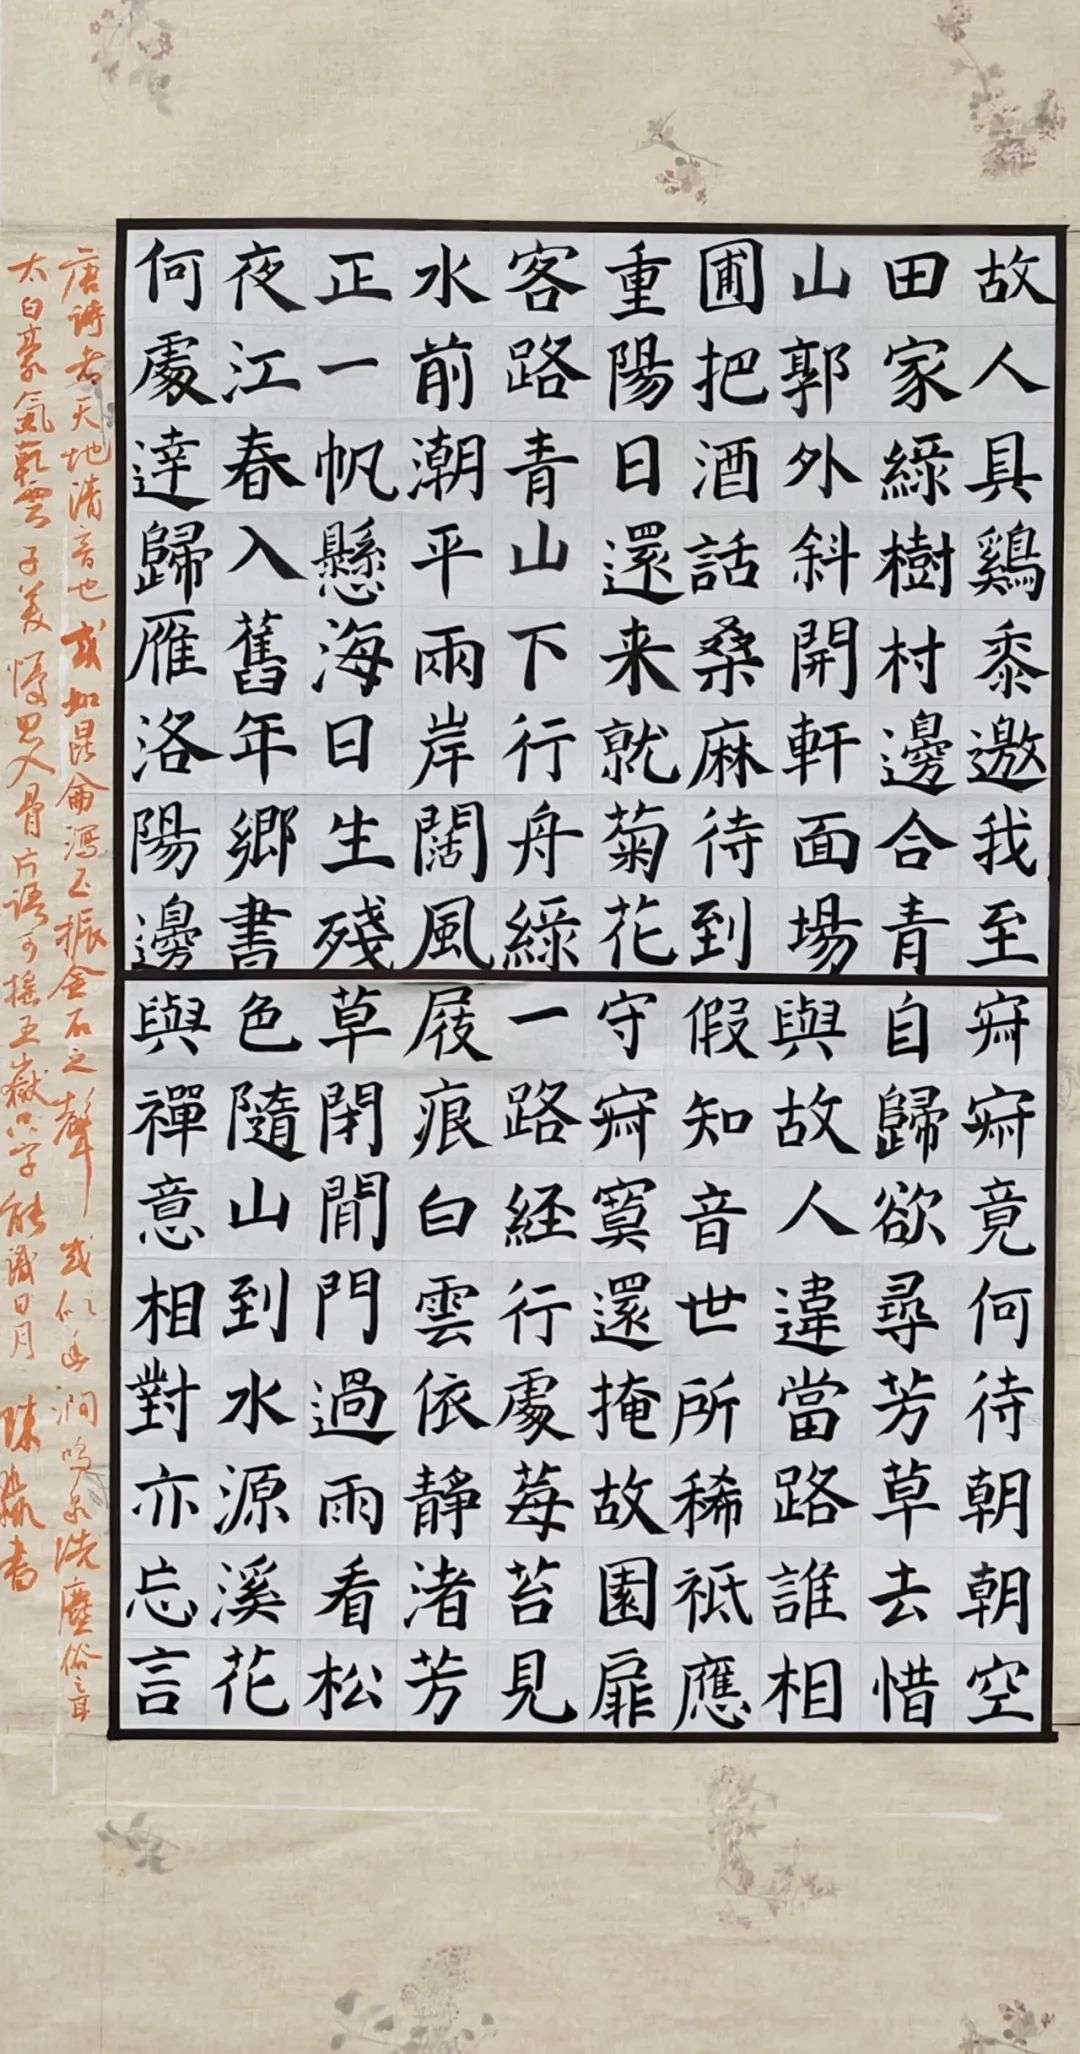 故人具鷄黍邀我至
田家綠樹村邊合青
山郭外斜開軒面場
圃把酒話桑麻待到
重陽日還来就菊花
客路青山下行舟綠
水前潮平兩岸闊風
正一帆懸海日生殘
夜江春入舊年鄉書
何處達歸雁洛陽邊
寂寂竟何待朝朝空
自歸欲尋芳草去惜
與故人違當路誰相
假知音世所稀祗應
守寂寞還掩故園扉
一路経行處莓苔見
屐痕白雲依静渚芳
草閉閒門過雨看松
色隨山到水源溪花
與禪意相對亦忘言
唐詩者天地清音也或如昆侖瀉玉振金石之聲或似幽澗鳴泉洗塵俗之耳
太白豪氣乾雲子美憂思入骨片語可搖五嶽只字能識日月 陳書